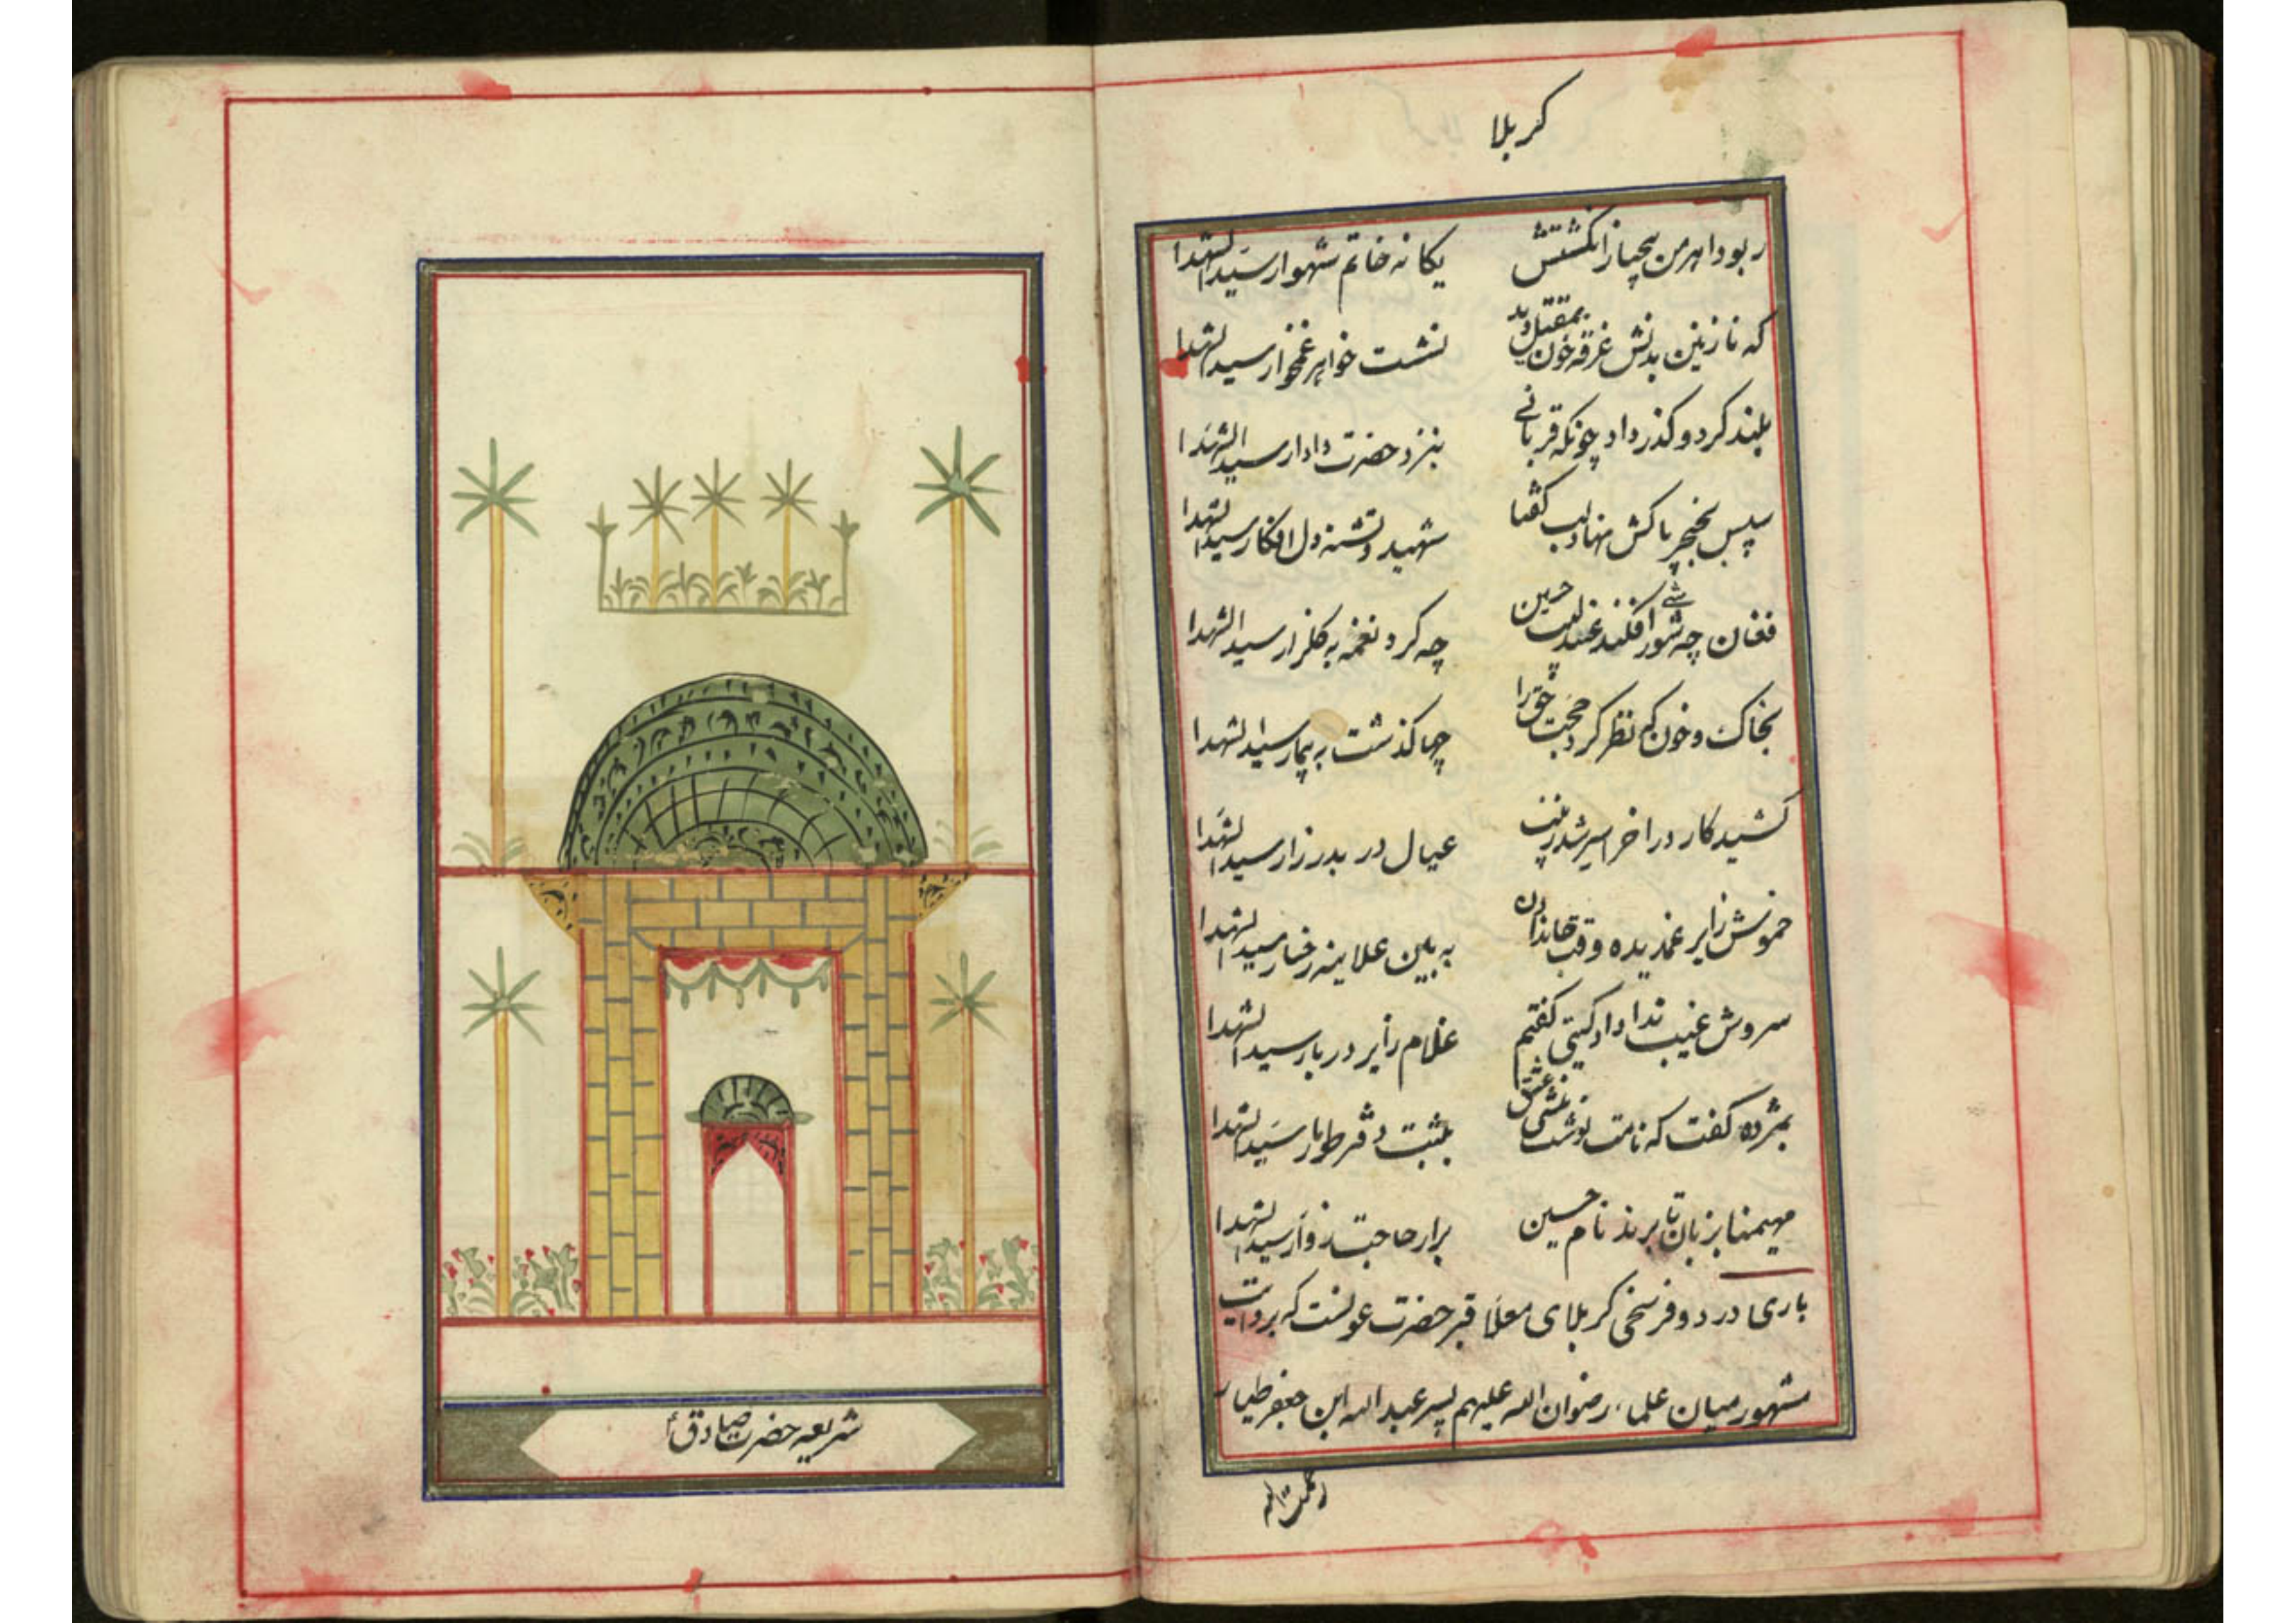 کربلا
ربود اهرمن بیحیا ز انگشتش یکانه خاتم شهوار سید الشهدا
که نازنین بدنش غرقه خون بمقتل دید نشست خواهر غمخوار سید الشهدا
بلند کرد و کذر داد چونکه قربانی بنزد حضرت دادار سید الشهدا
سپس بخنجر پاکش نهاد لب کفتا شهید و تشنه دل افکار سید الشهدا
فغان چه شور افکند عندلیب حسین چه کرد نغمه به کلزار سید الشهدا
بخاک و خون که نظر کرد حجت حق را چها کذشت به بیمار سید الشهدا
کشید کار در اخر اسیر شد زینب عیال در بدر زار سید الشهدا
خموش زایر غمدیده وقت جاندادن به بین علاینه رخسار سید الشهدا
سروش غیب ندا داد کیتی کفتم غلام زایر دربار سید الشهدا
بمژده کفت که نامت نوشت منشی عشق بثبت دفتر طومار سید الشهدا
مهیمنا بزبان تا برند نام حسین برار حاجت زوار سید الشهدا
باری در دو فرسخی کربلای معلا قبر حضرت عونست که بروایت
مشهور میان علماء رضوان الله علیهم پسر عبد الله ابن جعفر طیار
رحمت الله
شریعه حضرت صادق ؑ